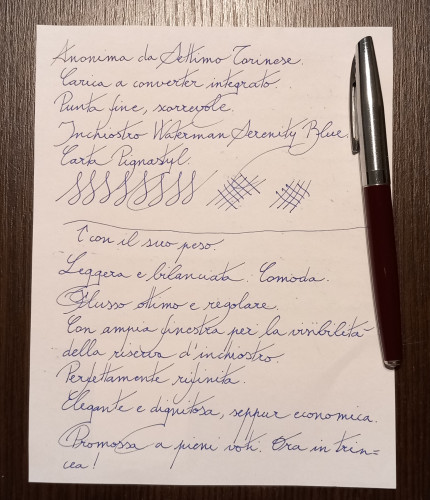 Anonima da Settimo Torinese.
Carica a converter integrato.
Punta fine, scorrevole.
Inchiostro Waterman Serenity Blue.
Carta Pignastyl.
↑ con il suo peso.
Leggera e bilanciata. Comoda.
Flusso ottimo e regolare.
Con ampia finestra per la visibilità
della riserva d'inchiostro.
Perfettamente rifinita.
Elegante e dignitosa, seppur economica.
Promossa a pieni voti. Ora in trin=
cea!